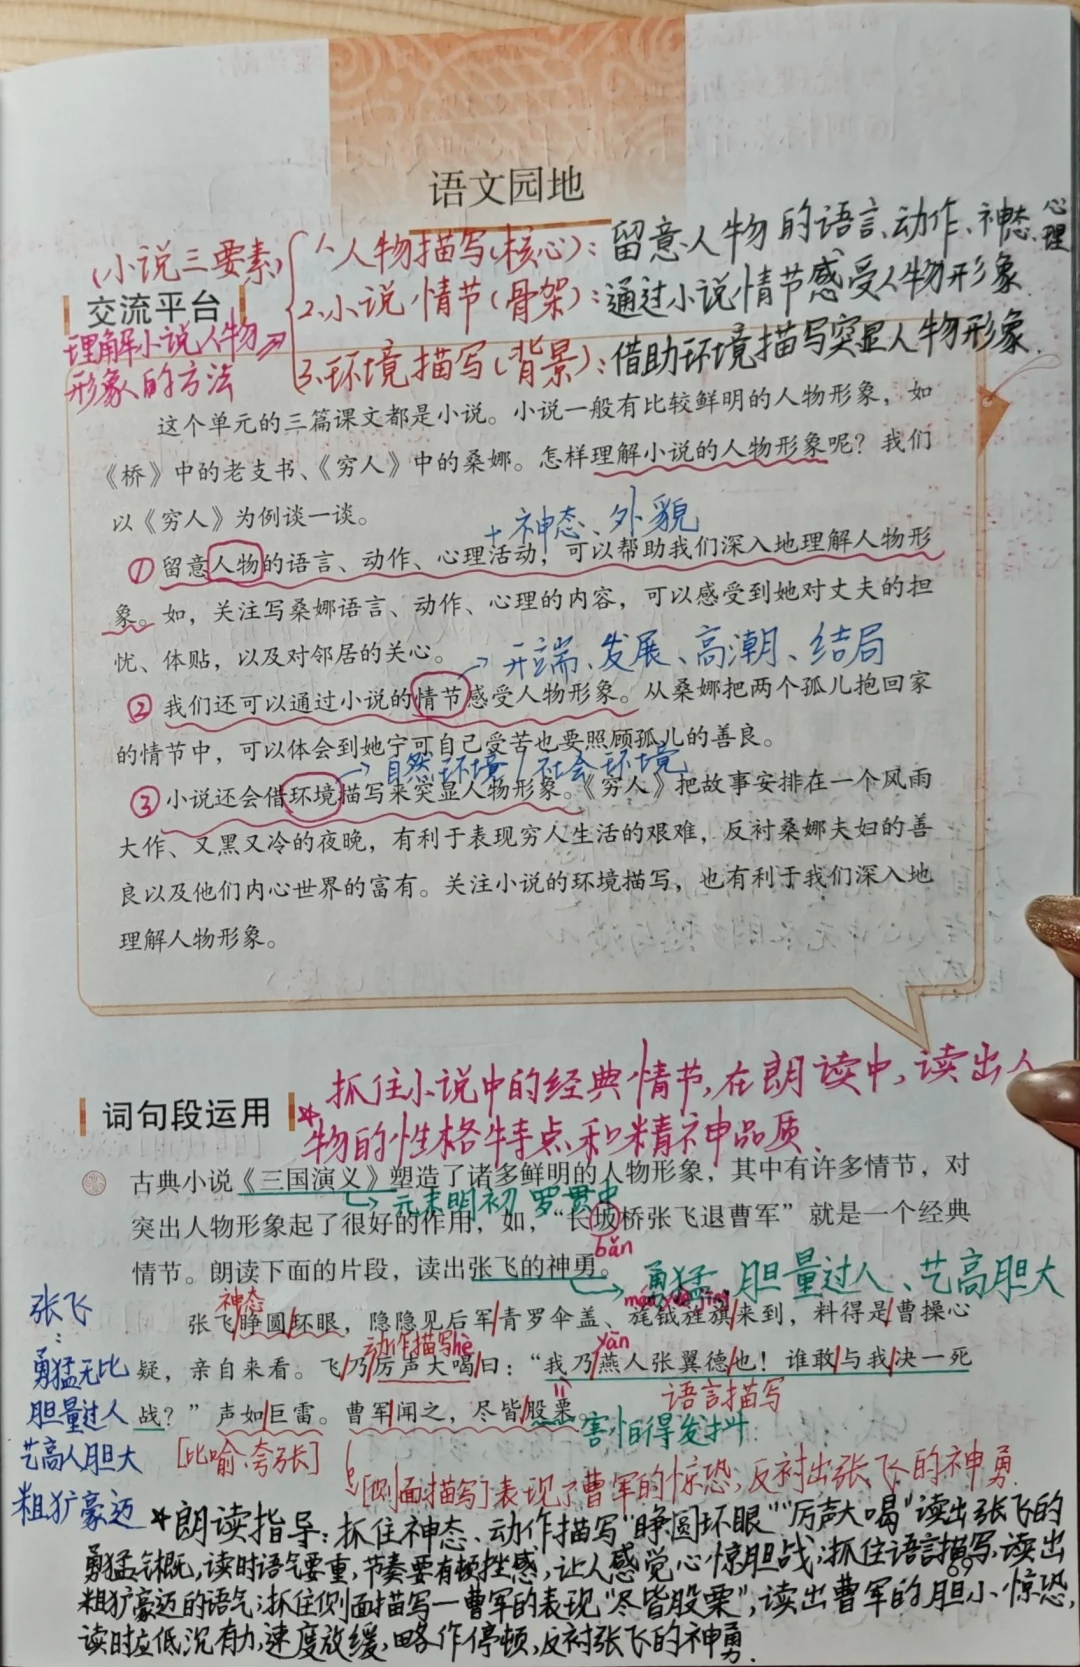 语文园地
(小说三要素)
1.人物描写(核心):留意人物的语言、动作、神态、心理
2.小说情节(骨架):通过小说情节感受人物形象
3.环境描写(背景):借助环境描写突显人物形象.
交流平台
理解小说人物
形象的方法
这个单元的三篇课文都是小说。小说一般有比较鲜明的人物形象，如
《桥》中的老支书、《穷人》中的桑娜。怎样理解小说的人物形象呢？我们
以《穷人》为例谈一谈。
+神态、外貌
①留意人物的语言、动作、心理活动，可以帮助我们深入地理解人物形
象。如，关注写桑娜语言、动作、心理的内容，可以感受到她对丈夫的担
忧、体贴，以及对邻居的关心。
→开端、发展、高潮、结局
②我们还可以通过小说的情节感受人物形象。从桑娜把两个孤儿抱回家
的情节中，可以体会到她宁可自己受苦也要照顾孤儿的善良。
→自然环境/社会环境
③小说还会借环境描写来突显人物形象。《穷人》把故事安排在一个风雨
大作、又黑又冷的夜晚，有利于表现穷人生活的艰难，反衬桑娜夫妇的善
良以及他们内心世界的富有。关注小说的环境描写，也有利于我们深入地
理解人物形象。
*抓住小说中的经典情节,在朗读中,读出人
物的性格特点和精神品质.
词句段运用
古典小说《三国演义》塑造了诸多鲜明的人物形象，其中有许多情节，对
→元末明初 罗贯中
突出人物形象起了很好的作用，如，“长坂桥张飞退曹军”就是一个经典
bǎn
情节。朗读下面的片段，读出张飞的神勇。
→勇猛、胆量过人、艺高胆大
神态
张飞/睁圆/环眼，隐隐见后军/青罗伞盖、旄钺旌旗/来到，料得是/曹操心
动作描写hè
yān
疑，亲自来看。飞/乃/厉声大喝/曰：“我乃/燕人张翼德/也！谁敢/与我/决一死
语言描写
战？”声如/巨雷。曹军/闻之，尽皆/股栗。
害怕得发抖
[比喻、夸张]
[侧面描写]表现了曹军的惊恐,反衬出张飞的神勇.
张飞:
勇猛无比
胆量过人
艺高人胆大
粗犷豪迈
*朗读指导:抓住神态、动作描写"睁圆环眼""厉声大喝"读出张飞的
勇猛气概,读时语气要重,节奏要有顿挫感,让人感觉心惊胆战;抓住语言描写,读出
69
粗犷豪迈的语气;抓住侧面描写—曹军的表现"尽皆股栗",读出曹军的胆小、惊恐,
读时应低沉有力,速度放缓,略作停顿,反衬张飞的神勇.